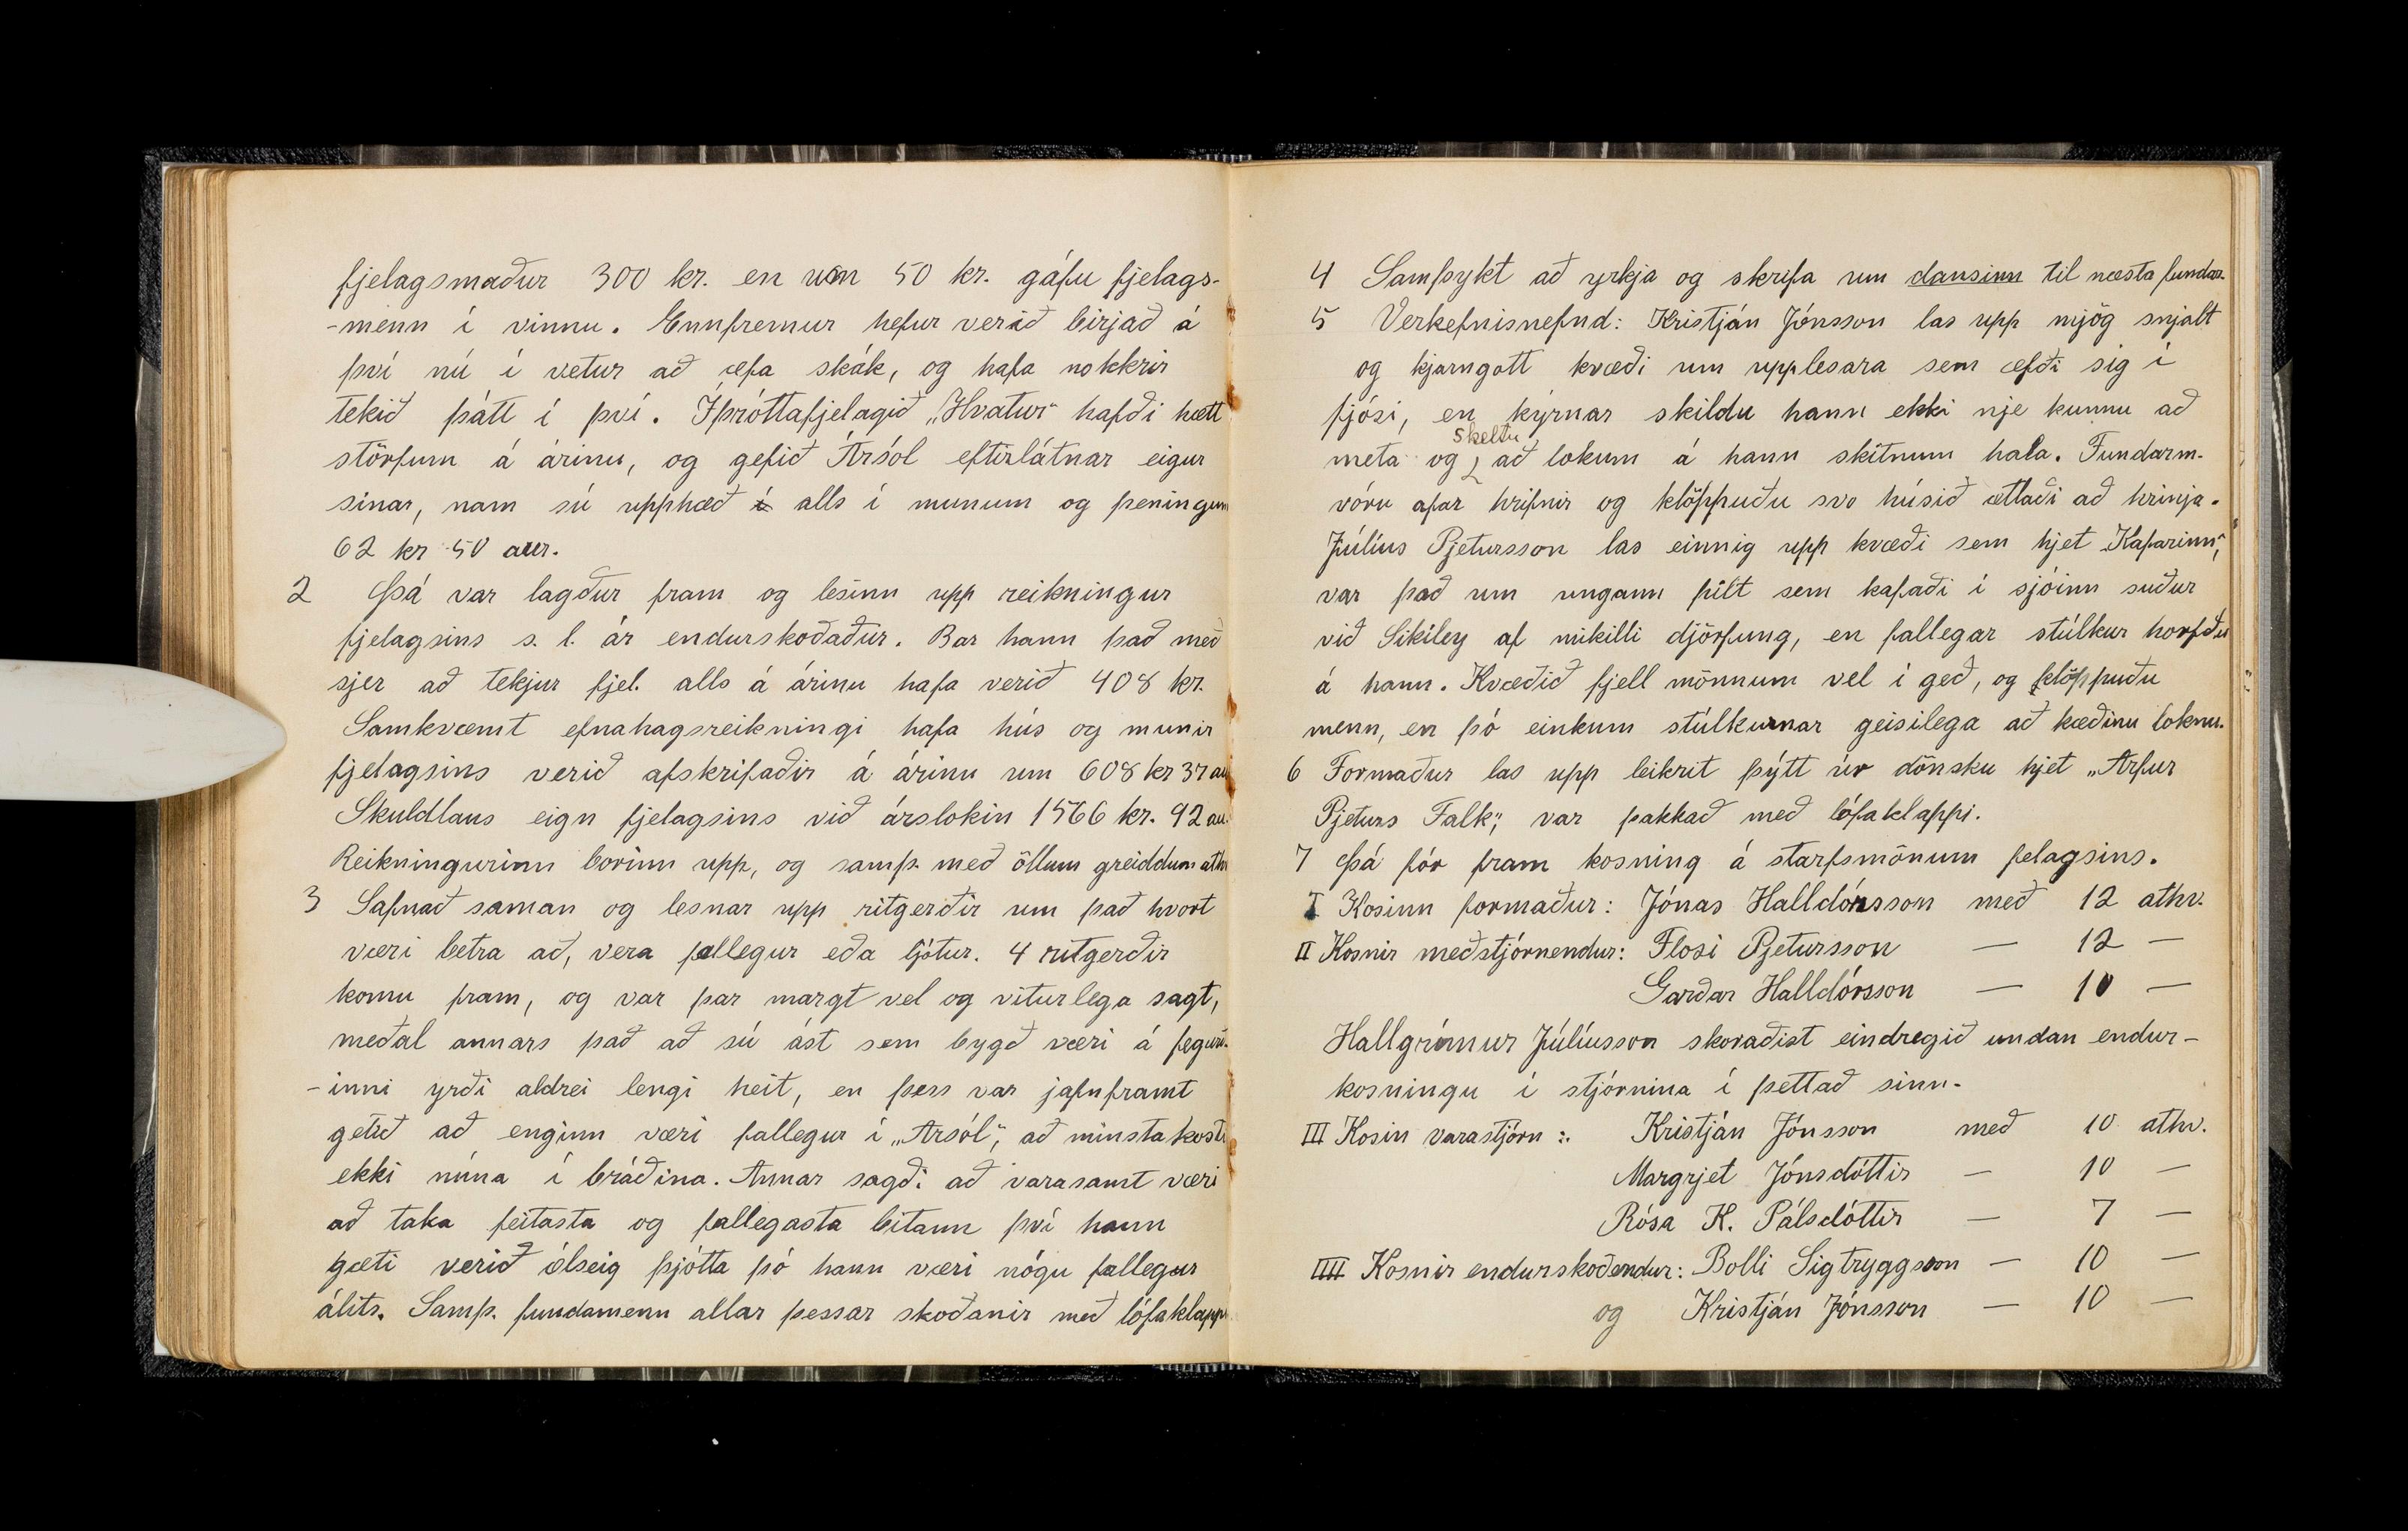 fjelagsmaður 300 kr. en um 50 kr. gáfu fjelags-
-menn í vinnu. Ennfremur hefur verið birjað á
því nú í vetur að æfa skák, og hafa nokkrir
tekið þátt í því. Íþróttafjelagið „Hvatur“ hafði hætt
störfum á árinu, og gefið Ársól eftirlátnar eigur
sínar, nam sú upphæð alls í munum og peningum
62 kr 50 aur.
2 Þá var lagður fram og lesinn upp reikningur
fjelagsins s. l. ár endurskoðaður. Bar hann það með
sjer að tekjur fjel. alls á árinu hafa verið 408 kr.
Samkvæmt efnahagsreikningi hafa hús og munir
fjelagsins verið afskrifaðir á árinu um 608 kr 37 au
Skuldlaus eign fjelagsins við árslokin 1566 kr. 92 au.
Reikningurinn borinn upp, og samþ. með öllum greiddum athv
3 Safnað saman og lesnar upp ritgerðir um það hvort
væri betra að, vera fallegur eða ljótur. 4 ritgerðir
komu fram, og var þar margt vel og viturlega sagt,
meðal annars það að sú ást sem bygð væri á fegurð-
-inni yrði aldrei lengi heit, en þess var jafnframt
getið að enginn væri fallegur í „Ársól“, að minsta kosti
ekki núna í bráðina. Annar sagði að varasamt væri
að taka feitasta og fallegasta bitann því hann
gæti verið ólseig þjótta þó hann væri nógu fallegur
álits. Samþ. fundamenn allar þessar skoðanir með lófaklappi
4 Samþykt að yrkja og skrifa um dansinn til næsta fundar.
5 Verkefnisnefnd: Kristján Jónsson las upp mjög snjalt
og kjarngott kvæði um upplesara sem æfði sig í
fjósi, en kýrnar skildu hann ekki nje kunnu að
meta og skeltu að lokum á hann skítnum hala. Fundarm.
vóru afar hrifnir og klöppuðu svo húsið ætlaði að hrinja.
Júlíus Pjetursson las einnig upp kvæði sem hjet „Kafarinn“,
var það um ungann pilt sem kafaði í sjóinn suður
við Sikiley af mikilli djörfung, en fallegar stúlkur horfðu
á hann. Kvæðið fjell mönnum vel í geð, og klöppuðu
menn, en þó einkum stúlkurnar geisilega að kæðinu loknu.
6 Formaður las upp leikrit þýtt úr dönsku hjet „Arfur
Pjeturs Falk“, var þakkað með lófaklappi.
7 Þá fór fram kosning á starfsmönum felagsins.
I Kosinn formaður: Jónas Halldórsson með 12 athv.
II Kosnir meðstjórnendur: Flosi Pjetursson — 12 —
Garðar Halldórsson — 10 —
Hallgrímur Júlíusson skoraðist eindregið undan endur-
kosningu í stjórnina í þettað sinn.
III Kosin varastjórn :. Kristján Jónsson með 10 athv.
Margrjet Jónsdóttir — 10 —
Rósa K. Pálsdóttir — 7 —
IIII Kosnir endurskoðendur: Bolli Sigtryggsson — 10 —
og Kristján Jónsson — 10 —